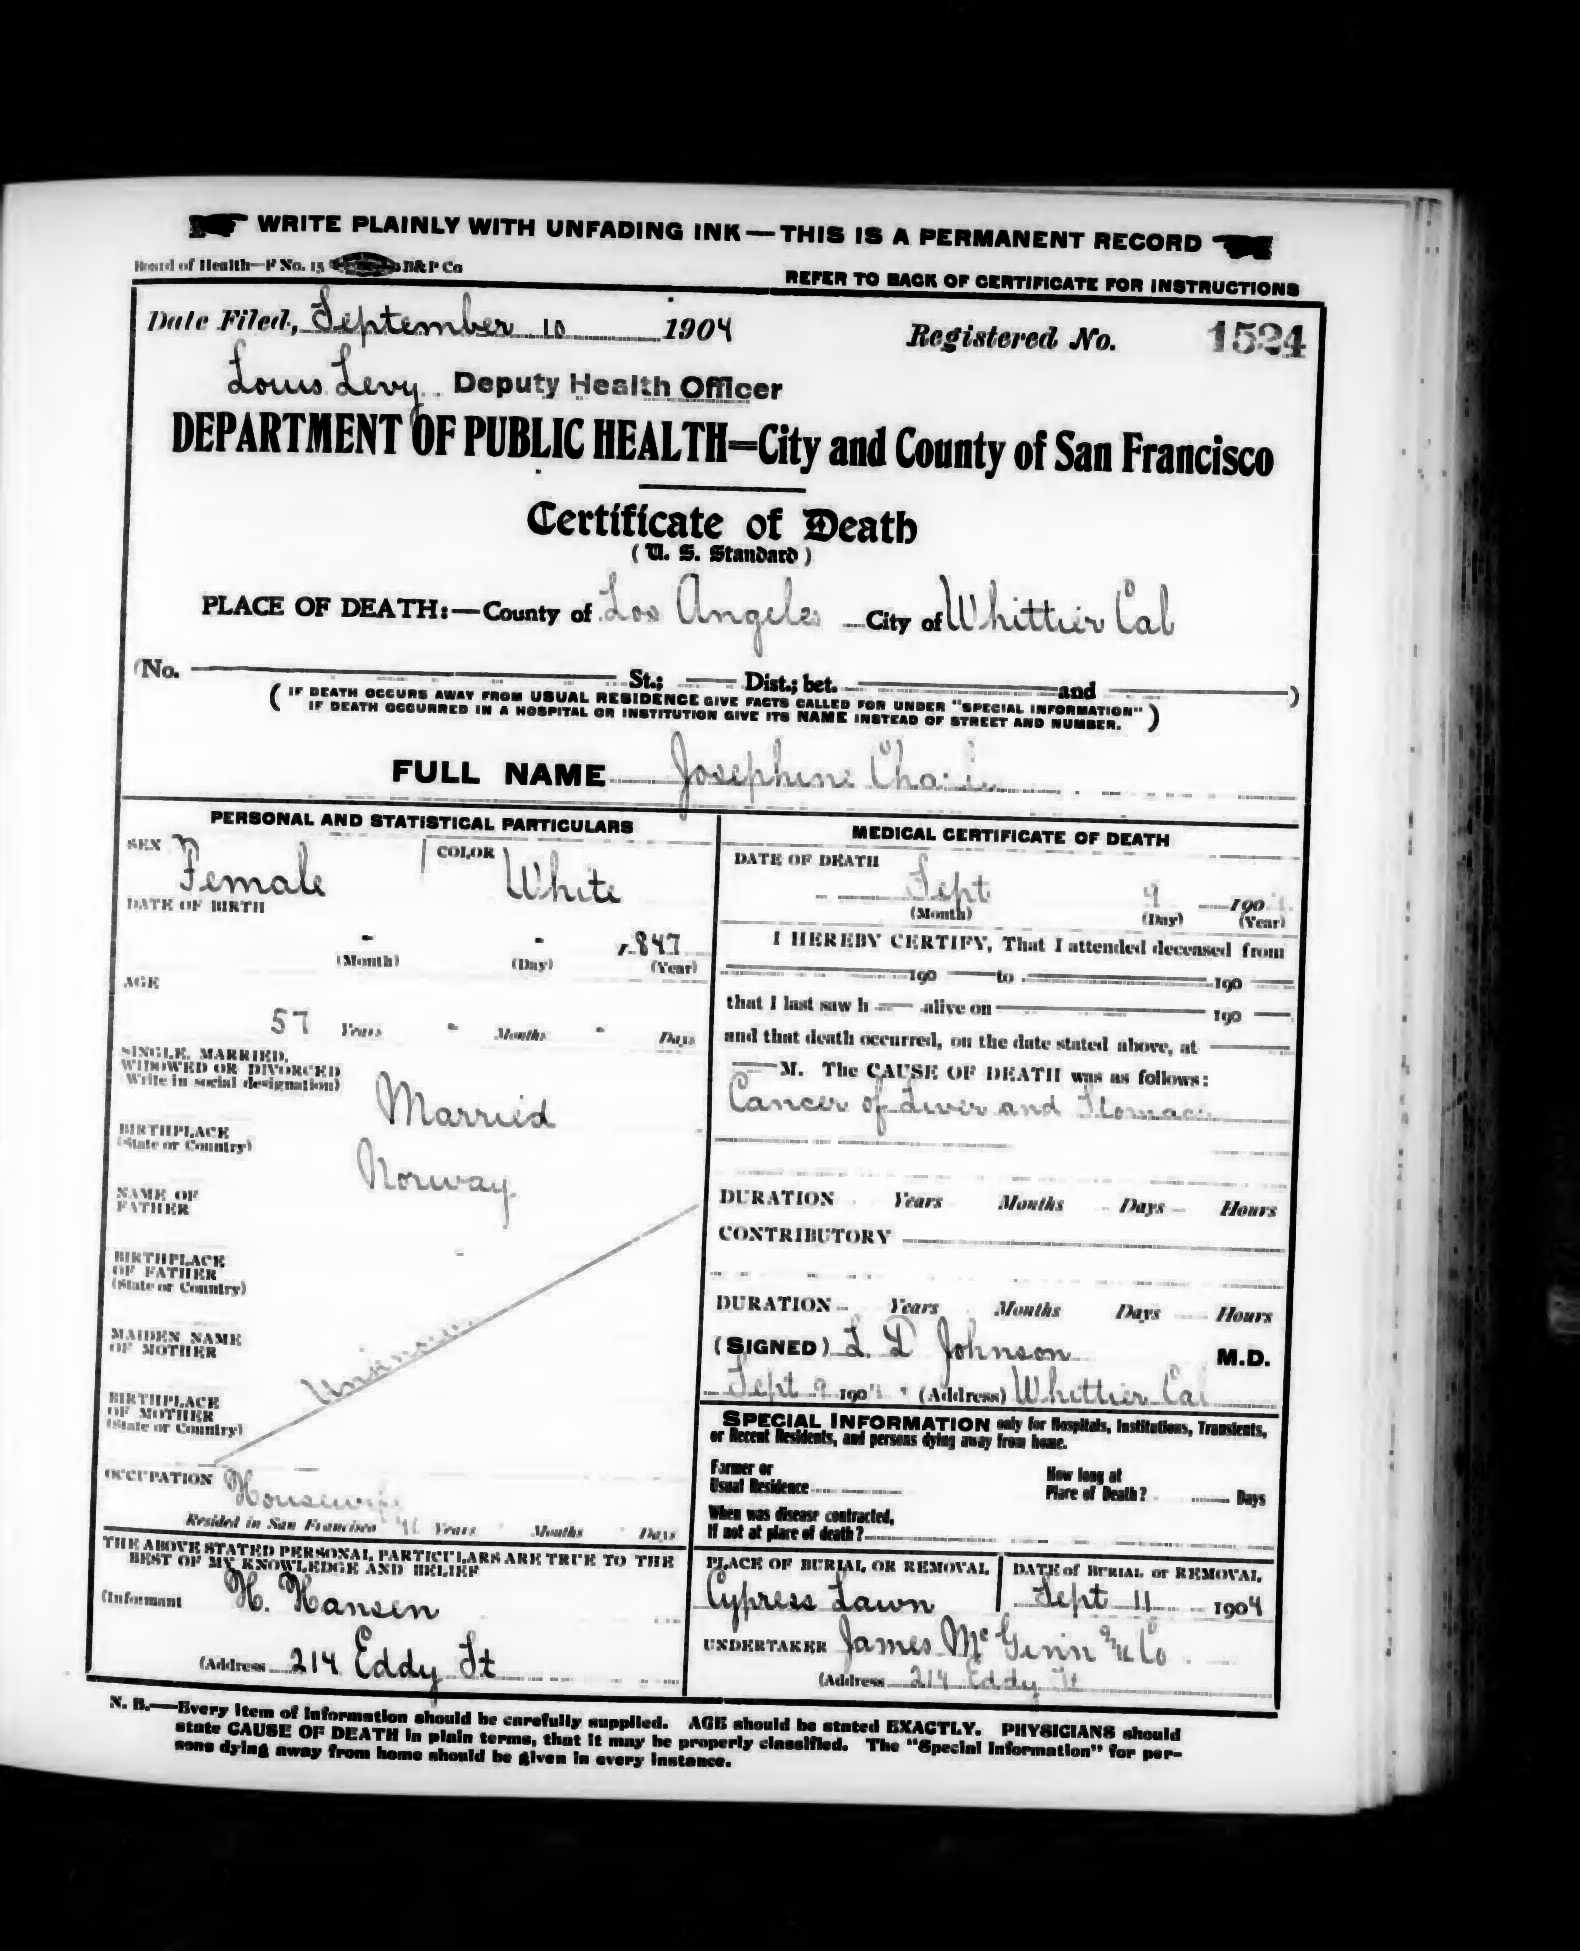 WRITE PLAINLY WITH UNFADING INK—THIS IS A PERMANENT RECORD
Board of Health—F No. 15 B&P Co
REFER TO BACK OF CERTIFICATE FOR INSTRUCTIONS
Date Filed, September 10 1904 Registered No. 1524
Louis Levy Deputy Health Officer
DEPARTMENT OF PUBLIC HEALTH=City and County of San Francisco
Certificate of Death
(U. S. Standard)
PLACE OF DEATH:—County of Los Angeles City of Whittier Cal
(No. St.; Dist.; bet. and )
( IF DEATH OCCURS AWAY FROM USUAL RESIDENCE GIVE FACTS CALLED FOR UNDER "SPECIAL INFORMATION"
IF DEATH OCCURRED IN A HOSPITAL OR INSTITUTION GIVE ITS NAME INSTEAD OF STREET AND NUMBER. )
FULL NAME Josephine
PERSONAL AND STATISTICAL PARTICULARS
SEX Female COLOR White
DATE OF BIRTH
- - 1847
(Month) (Day) (Year)
AGE
57 Years - Months - Days
SINGLE, MARRIED,
WIDOWED OR DIVORCED
(Write in social designation) Married
BIRTHPLACE
(State or Country) Norway
NAME OF
FATHER
BIRTHPLACE
OF FATHER
(State or Country)
MAIDEN NAME
OF MOTHER
Unknown
BIRTHPLACE
OF MOTHER
(State or Country)
OCCUPATION Housewife
Resided in San Francisco Years Months Days
THE ABOVE STATED PERSONAL PARTICULARS ARE TRUE TO THE
BEST OF MY KNOWLEDGE AND BELIEF
(Informant H. Hansen
(Address 214 Eddy St
MEDICAL CERTIFICATE OF DEATH
DATE OF DEATH
Sept 9 190
(Month) (Day) (Year)
I HEREBY CERTIFY, That I attended deceased from
190 to 190
that I last saw h alive on 190
and that death occurred, on the date stated above, at
M. The CAUSE OF DEATH was as follows:
Cancer of Liver and Stomach
DURATION Years Months Days Hours
CONTRIBUTORY
DURATION Years Months Days Hours
(SIGNED) L. D Johnson M.D.
Sept 9 190 (Address) Whittier Cal
SPECIAL INFORMATION only for Hospitals, Institutions, Transients,
or Recent Residents, and persons dying away from home.
Former or
Usual Residence
How long at
Place of Death? Days
When was disease contracted,
If not at place of death?
PLACE OF BURIAL OR REMOVAL
Cypress Lawn
DATE of BURIAL or REMOVAL
Sept 11 1904
UNDERTAKER James McGinn & Co
(Address 214 Eddy St
N. B.—Every item of information should be carefully supplied. AGE should be stated EXACTLY. PHYSICIANS should
state CAUSE OF DEATH in plain terms, that it may be properly classified. The "Special Information" for per-
sons dying away from home should be given in every instance.